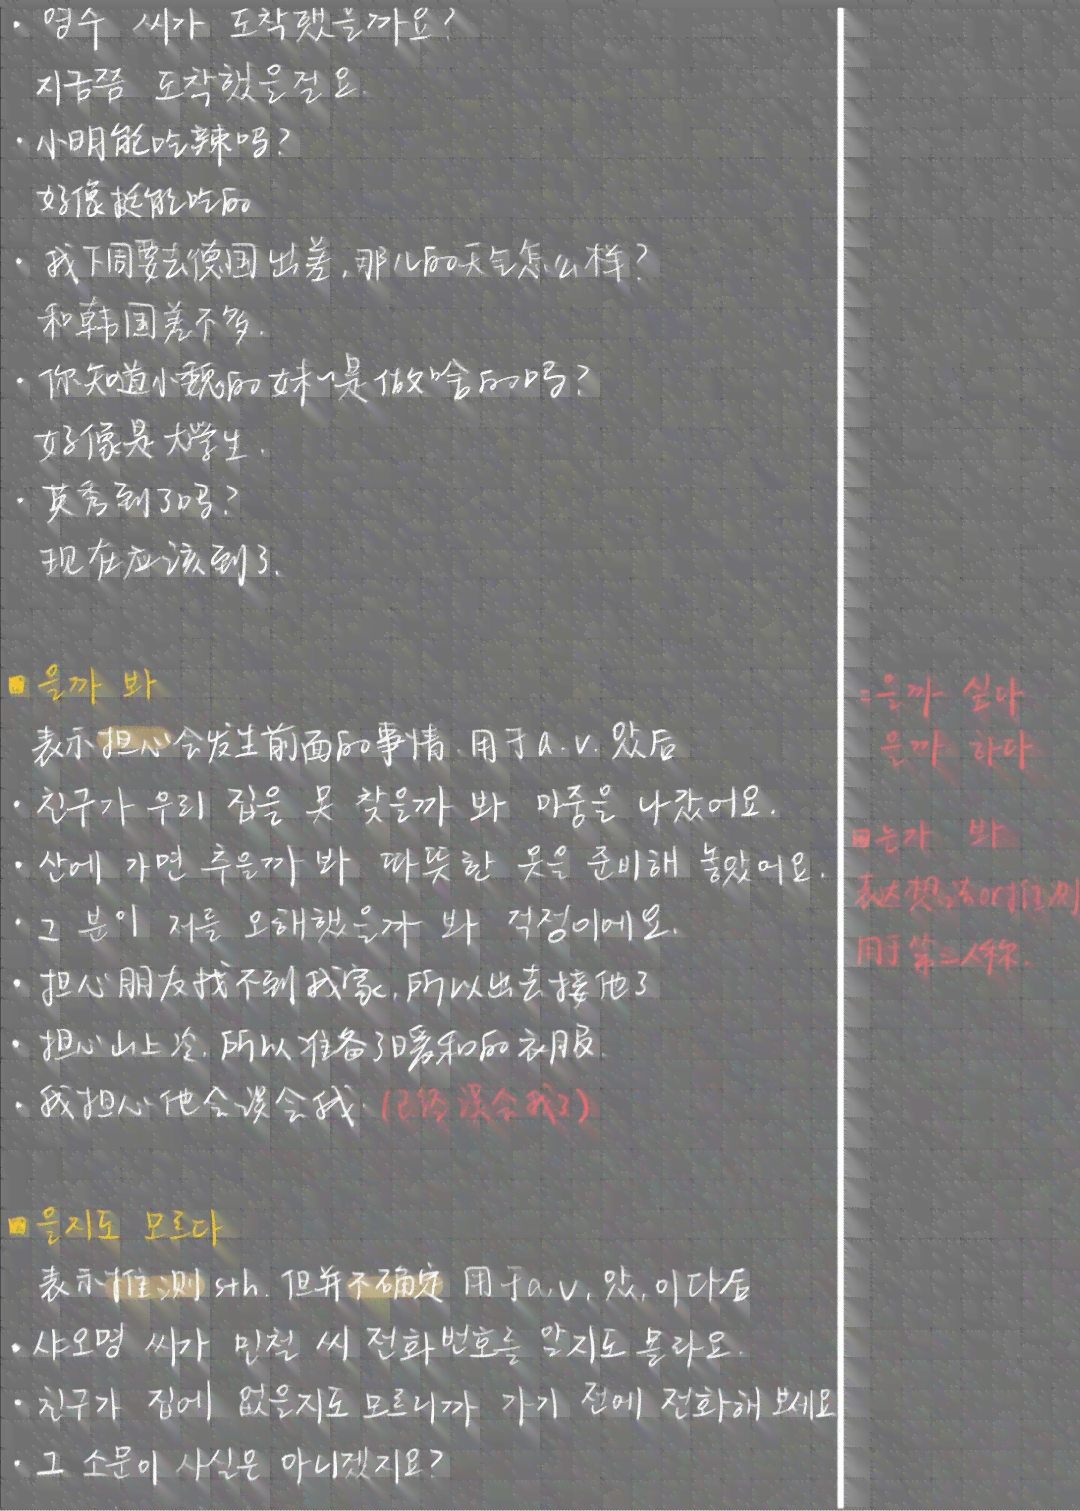 · 영수 씨가 도착했을까요?
지금쯤 도착했을걸요.
· 小明能吃辣吗?
好像挺能吃的
· 我下周要去德国出差,那儿的天气怎么样?
和韩国差不多.
· 你知道小魏的妹妹是做啥的吗?
好像是大学生.
· 英秀到了吗?
现在应该到了.
■ 을까 봐
表示担心会发生前面的事情.用于a.v.았后
· 친구가 우리 집을 못 찾을까 봐 마중을 나갔어요.
· 산에 가면 추울까 봐 따뜻한 옷을 준비해 놓았어요.
· 그 분이 저를 오해했을까 봐 걱정이에요.
· 担心朋友找不到我家,所以出去接他了
· 担心山上冷,所以准备了暖和的衣服.
· 我担心他会误会我.(已经误会我了)
■ 을지도 모르다
表示推测sth.但并不确定 用于a,v,았,이다后
· 샤오밍 씨가 민철 씨 전화번호를 알지도 몰라요.
· 친구가 집에 없을지도 모르니까 가기 전에 전화해 보세요
· 그 소문이 사실은 아니겠지요?
□을까 싶다
을까 하다
■는가 봐
表达想法or推测
用于第三人称.